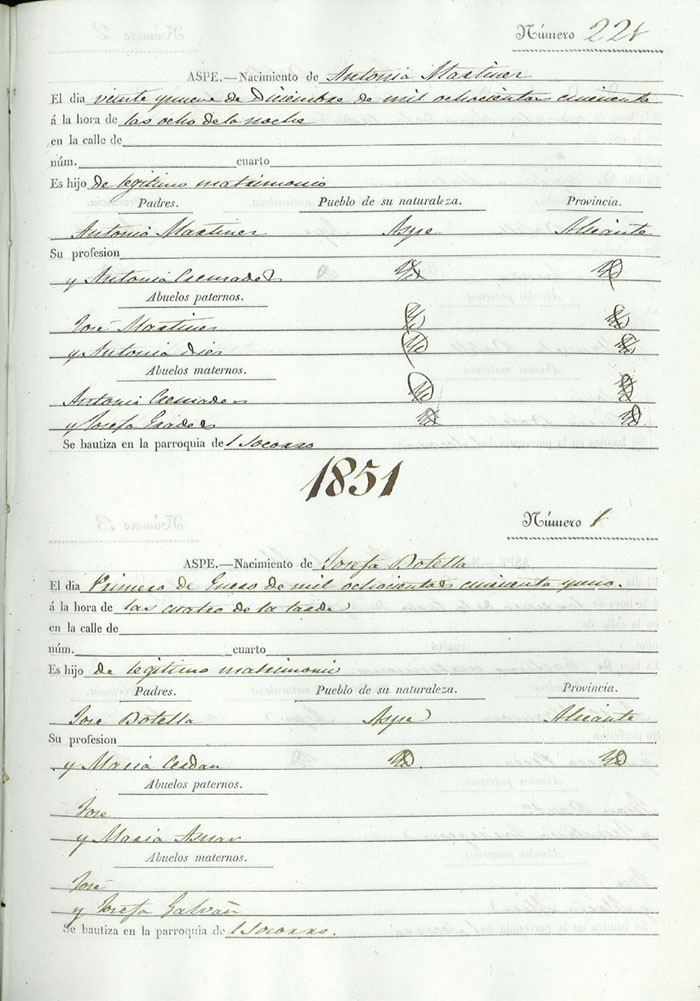 Número 221
ASPE.—Nacimiento de Antonia Martinez
El dia veinte y nueve de Diciembre de mil ochocientos cincuenta
á la hora de las ocho de la noche
en la calle de
núm. cuarto
Es hijo de legitimo matrimonio
Padres. Pueblo de su naturaleza. Provincia.
Antonio Martinez Aspe Alicante
Su profesion
y Antonia Cremades Yd Yd
Abuelos paternos.
José Martinez Yd Yd
y Antonia Dies Yd Yd
Abuelos maternos.
Antonio Cremades Yd Yd
y Josefa Yd Yd
Se bautiza en la parroquia del Socorro
1851
Número 1
ASPE.—Nacimiento de Josefa Botella
El dia Primero de Enero de mil ochocientos cincuenta y uno.
á la hora de las cuatro de la tarde
en la calle de
núm. cuarto
Es hijo de legitimo matrimonio
Padres. Pueblo de su naturaleza. Provincia.
José Botella Aspe Alicante
Su profesion
y Maria Cerdan Yd Yd
Abuelos paternos.
José
y Maria Asnar
Abuelos maternos.
José
y Josefa Galván
Se bautiza en la parroquia del Socorro.